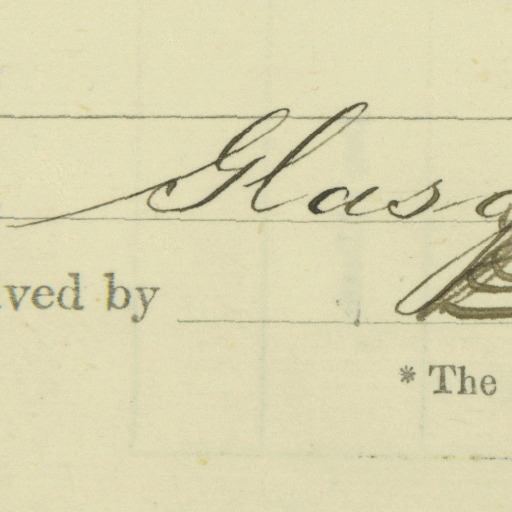 Glasg
ived by
* The